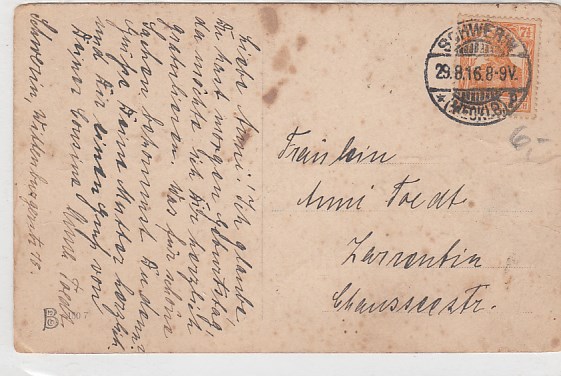 Liebe Anni! Ich glaube
Du hast morgen Geburtstag,
da möchte ich Dir herzlich
gratulieren. Was für schöne
Sachen bekommst Du denn?
Grüße Deine Mutter herzlich
und Dir einen Gruß von
Deiner Cousine Toedt
Schwerin, Wittenburgerstr. 75.
SCHWERIN
29.8.16.8-9V.
* (MECKLB) *
7½
6,-
Fräulein
Anni Toedt
Zarrentin
Chausseestr.